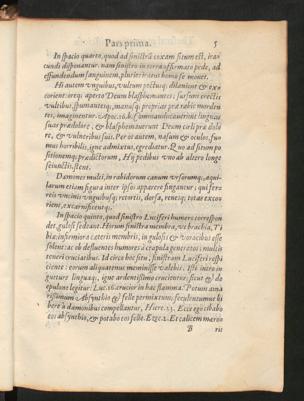 Pars prima. 5
In spacio quarto, quod ad sinistrã coxam situm est, ira-
cundi disponantur. nam sinistro in terra offirmato pede, ad
effundendum sanguinem, plurier iratus homo se monet.
Hi autem unguibus, vultum pectusq; dilanient & ex-
corient: ereqz aperto Deum blasphemantes: sursum erectis
vultibus, spumantesq;, manusq; proprias præ rabie morden-
tes, imaginentur. Apoc. 16. & Commanducauerunt linguas
suas præ dolore, & blasphemauerunt Deum cœli præ dolo
re, & vulneribus suis. Per os autem, nasum & oculos, fu-
mus horribilis, igne admixtus, egrediatur. Quo ad situm po
sitionemq; prædictorum, Hi pedibus uno ab altero longe
seiunctis, stent.
Dæmones multi, in rabidorum canum ursorumq;, aqui-
larum etiam figura inter ipsos apparere fingantur: qui fero
reis uncinis unguibusq; retortis, dorsa, renesq; totas excor
rient, excarnificentq;.
In spacio quinto, quod sinistro Luciferi humero correspon
det gulosi sedeant. Horum sinistra membra, ut brachia, Ti
bia; infirmiora cæteris membris, in gulosis & voracibus esse
solent: ac ob defluentes humores à crapula generatos; multis
teneri cruciatibus. Id circo hoc situ, sinistram Luciferi respi
ciente: eorum aliquatenus meminisse valebis. Isti intro in
gutture linguaq;, igne ardentissimo crucientur; sicut & de
epulone legitur: Luc. 16. crucior in hac flamma. Potum ama
rissimum Absynthio & felle permixtum; seculentumue bi
bere à dæmonibus compellantur, Hiere. 23. Ecce ego cibabo
eos absynthio, & potabo eos felle. Eze. 2. Et calicem mæro
B ris